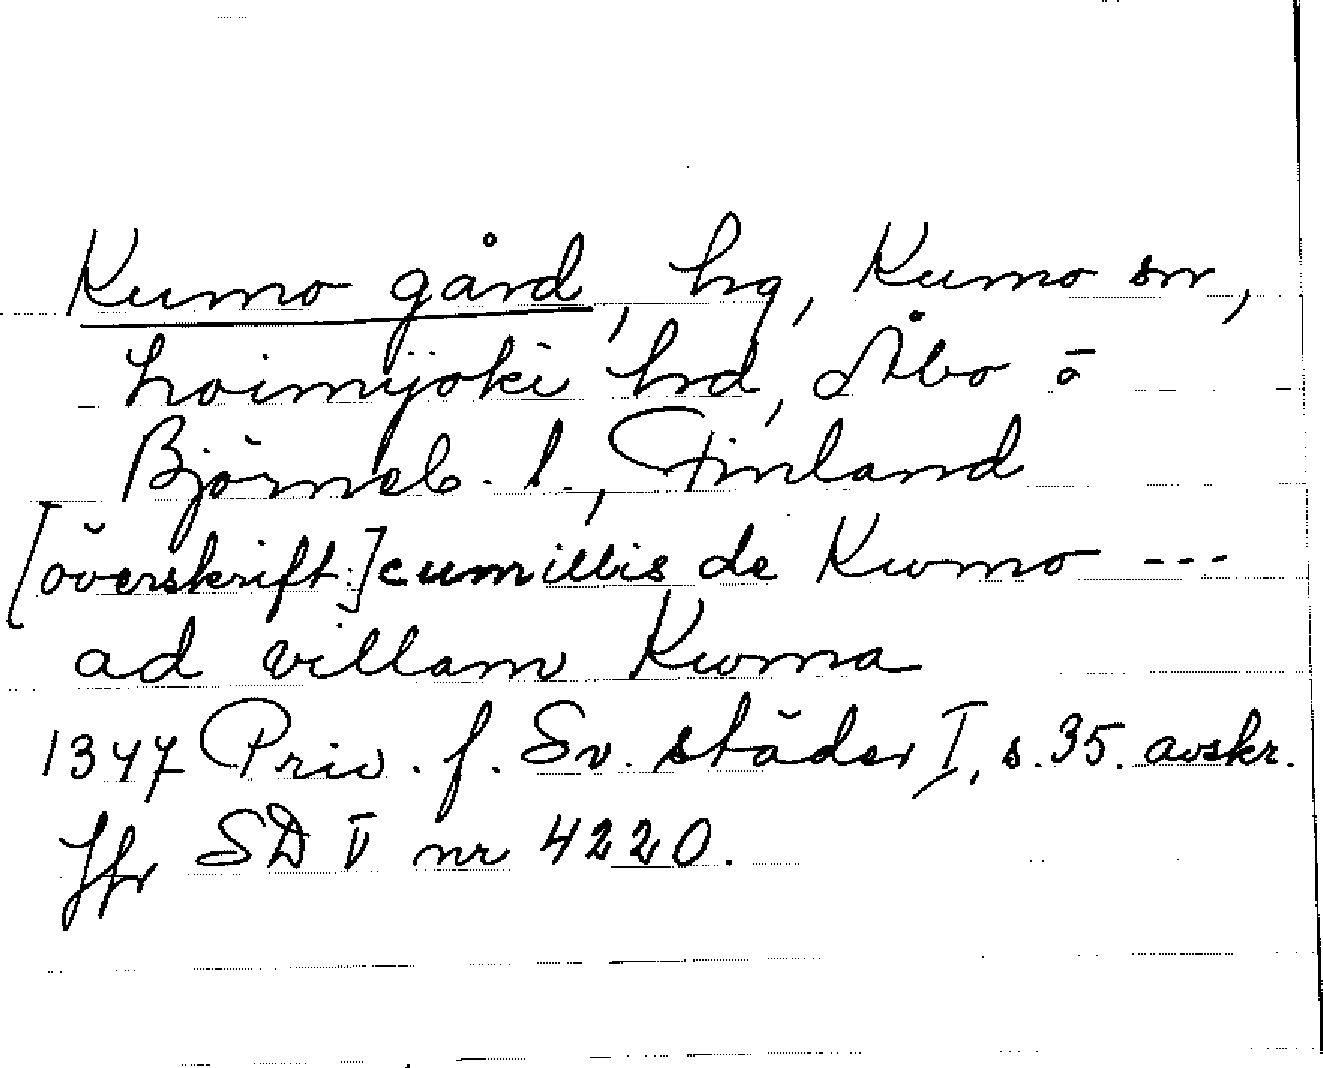 Kumo gård, hg, Kumo sn,
Loimijoki hd, Åbo o
Björneb. l., Finland
[överskrift:] cum illis de Kwmo ---
ad villam Kwma
1347 Priv. f. Sv. städer I, s. 35. avskr.
Jfr SD V nr 4220.